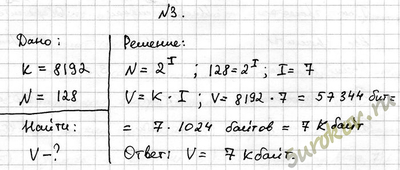 №3.
Дано:
K = 8192
N = 128
Найти:
V-?
Решение:
N = 2^I ; 128 = 2^I ; I = 7
V = K · I ; V = 8192 · 7 = 57344 бит =
= 7 · 1024 байтов = 7 Кбайт
Ответ: V = 7 Кбайт.